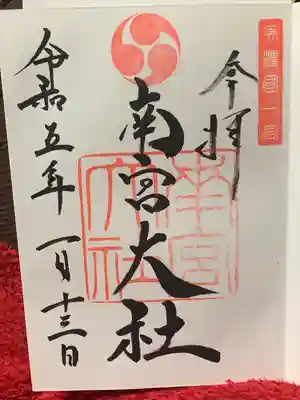 美濃國一宮
奉拝
南宮大社
南宮
大社
令和五年 一月十三日